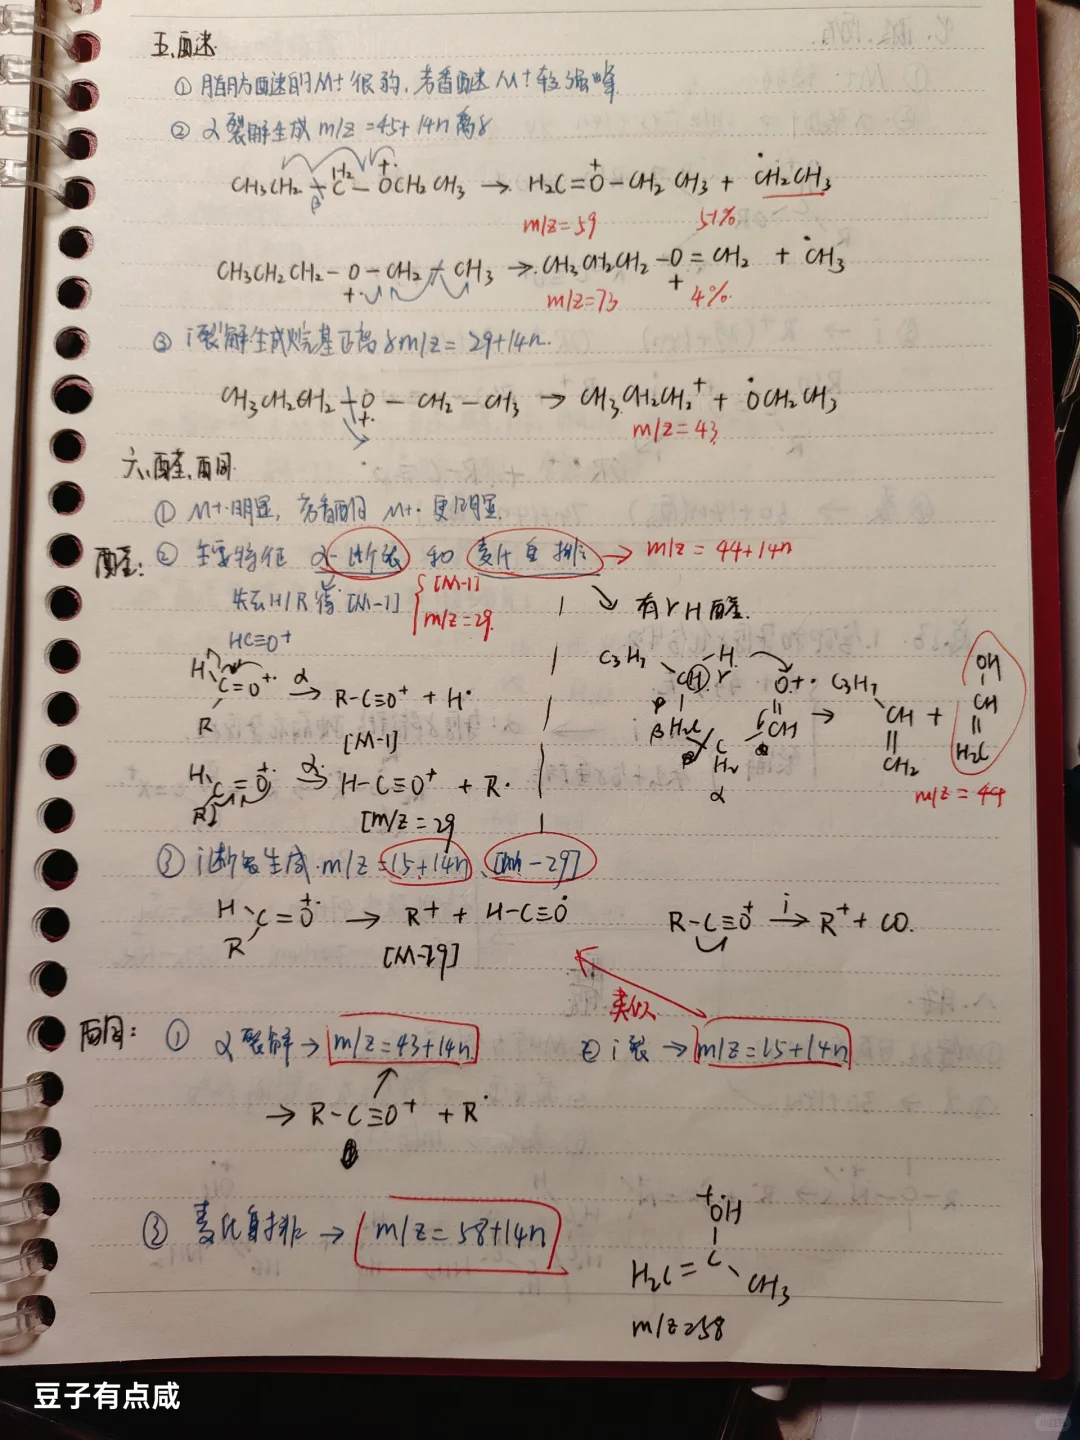 五、醚
① 脂肪醚的M+很弱，芳香醚M+较强峰
② α裂解生成 m/z=45+14n离子
CH3CH2 - C(H2) - O+·CH2CH3 → H2C=O+-CH2CH3 + ·CH2CH3
β
m/z=59 51%
CH3CH2CH2-O+·-CH2-CH3 → CH3CH2CH2-O+=CH2 + ·CH3
m/z=73 4%
③ i裂解生成烷基正离子m/z=29+14n.
CH3CH2CH2-O+·-CH2-CH3 → CH3CH2CH2+ + ·OCH2CH3
m/z=43
六、醛、酮
① M+·明显, 芳香酮 M+· 更明显.
醛: ② 主要特征 α-断裂 和 麦氏重排 → m/z=44+14n
失去H/R得[M-1] { [M-1] m/z=29
有γH醛.
HC≡O+
H R C=O+· α→ R-C≡O+ + H·
[M-1]
H R C=O+· α→ H-C≡O+ + R·
[m/z=29
C3H7 CH H γ O+· CH β H2C C H2 α → C3H7 CH=CH2 + OH CH=H2C
m/z=44
③ i断裂生成 m/z=15+14n、[M-29]
H R C=O+· → R+ + H-C≡O·
[M-29]
R-C≡O+ i→ R+ + CO.
类似
酮: ① α裂解 → m/z=43+14n
② i裂 → m/z=15+14n
→ R-C≡O+ + R·
③ 麦氏重排 → m/z=58+14n
+·OH
H2C=C-CH3
m/z=58
豆子有点咸